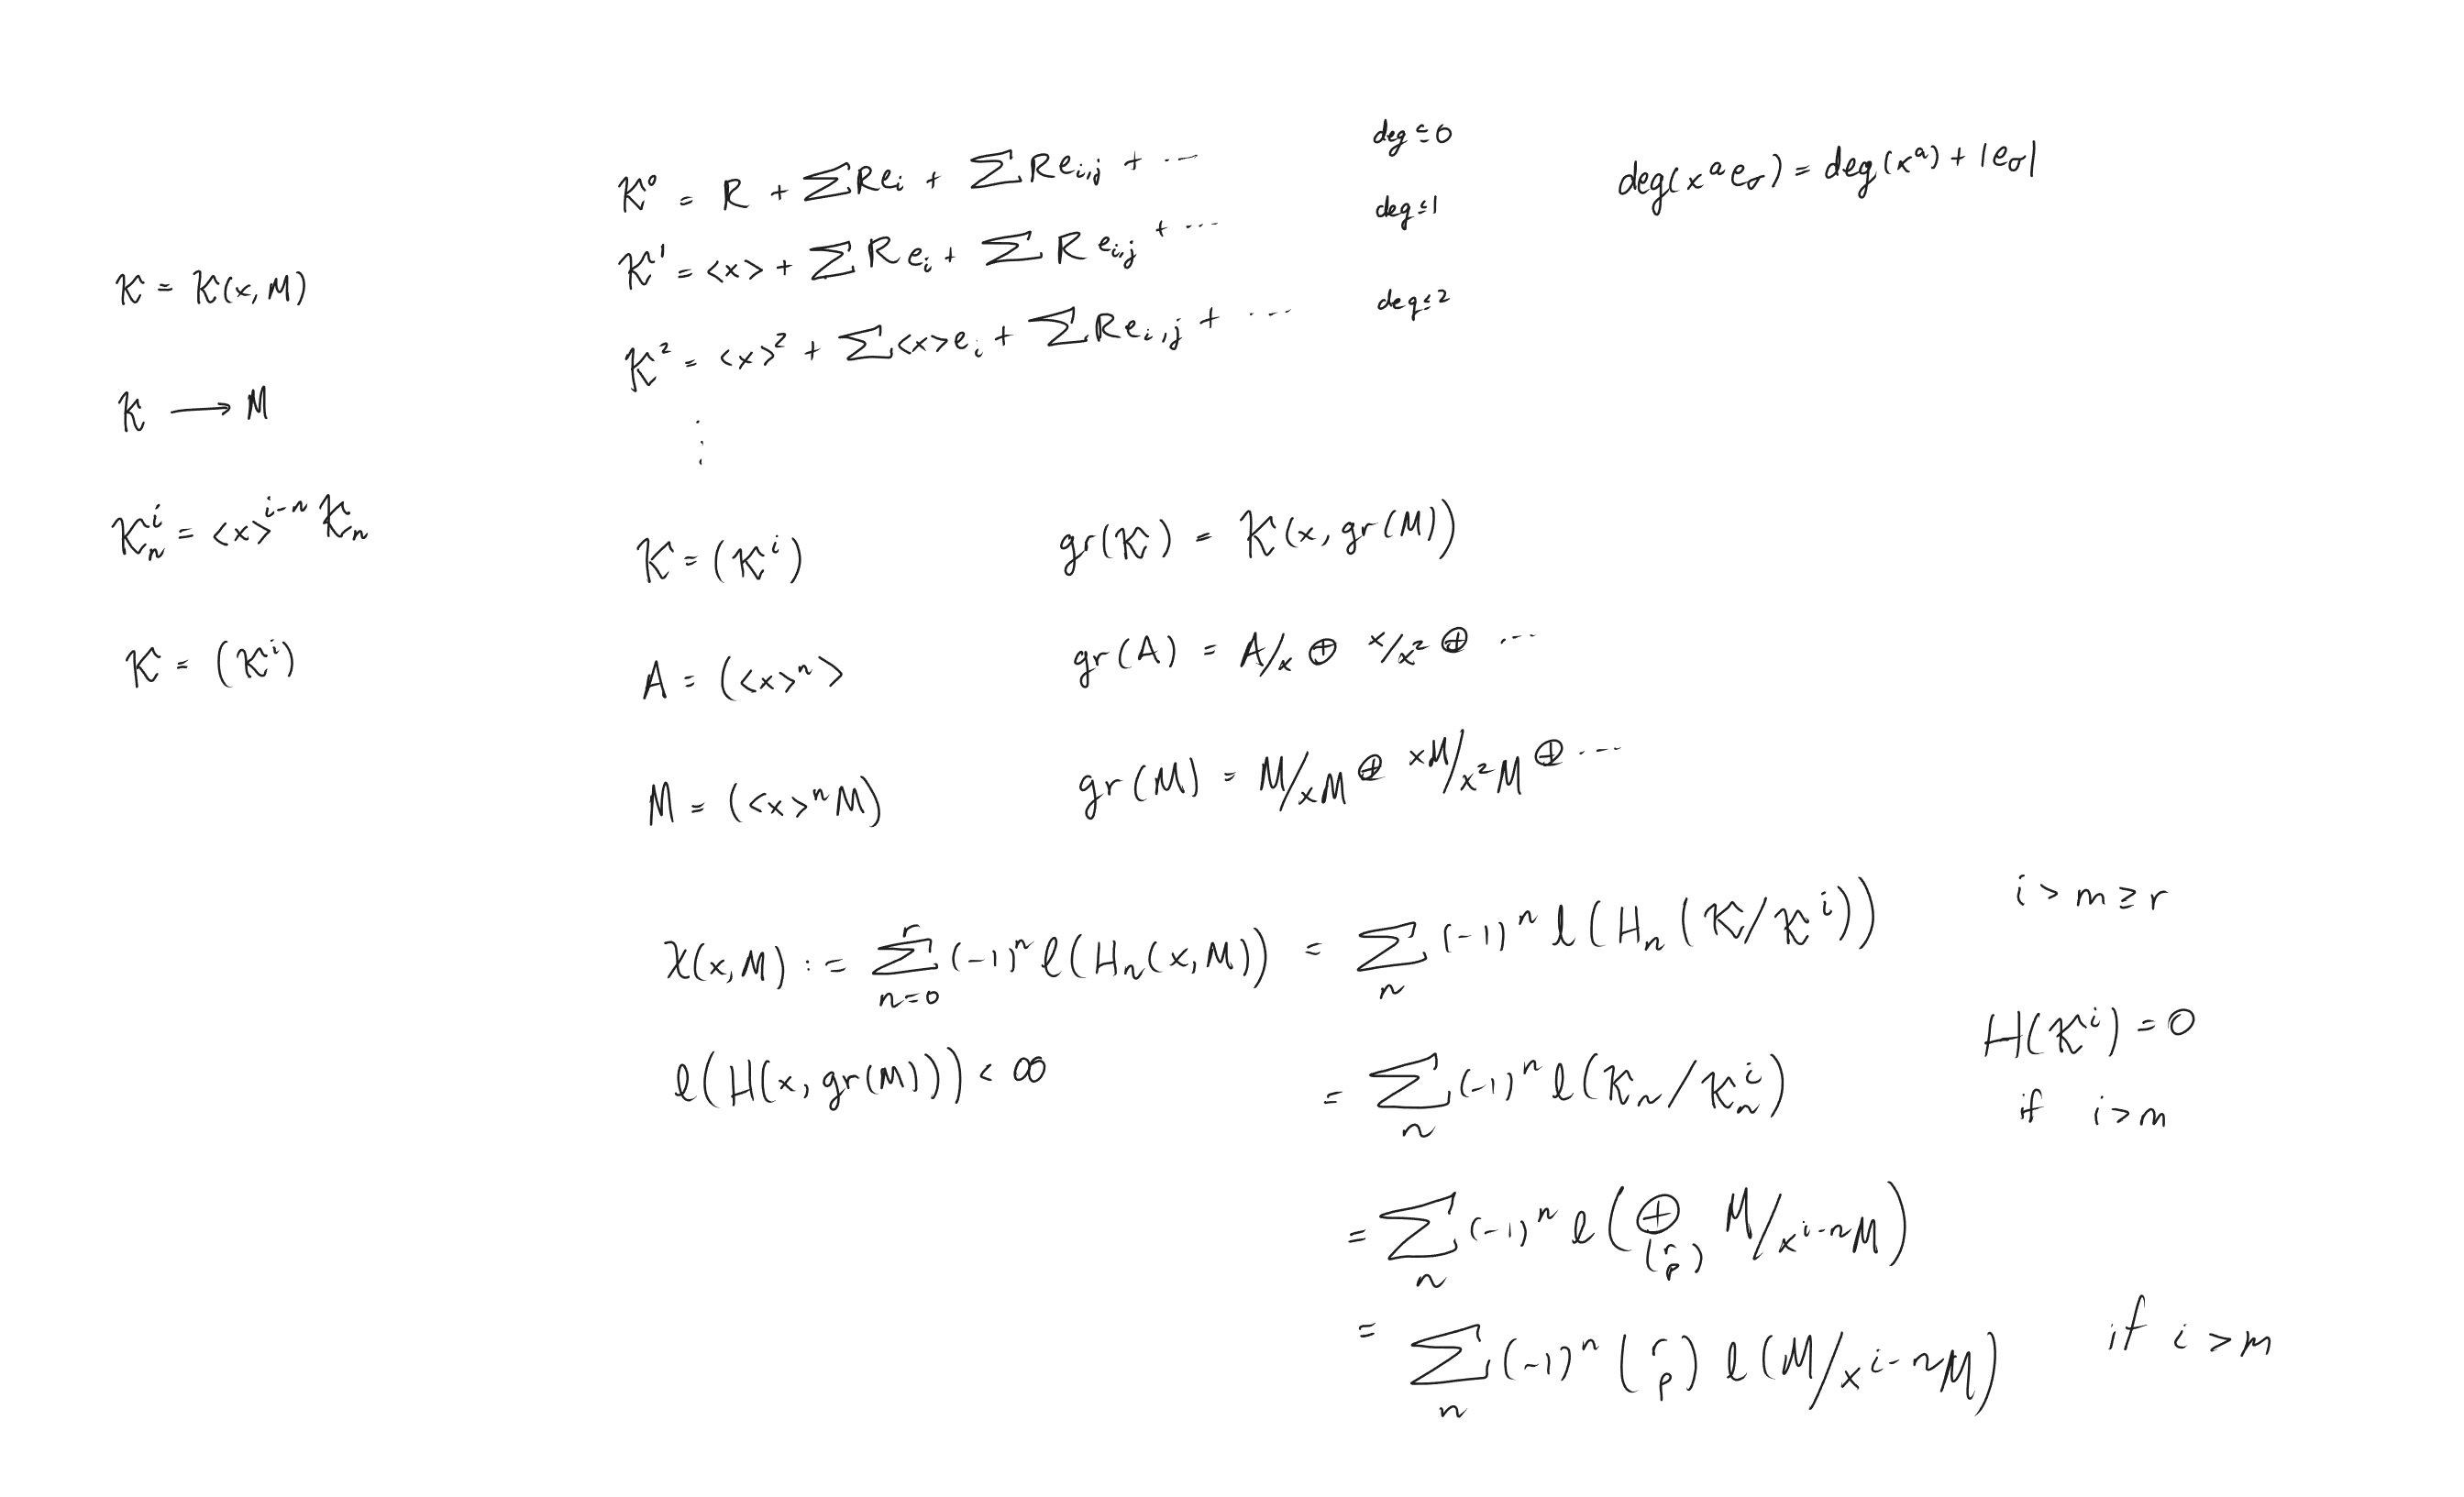 K = K(x, M)
K ⟶ M
Kₙⁱ = <x>ⁱ⁻ⁿ Kₙ
K = (Kⁱ)
K⁰ = R + ∑Reᵢ + ∑Reᵢ,ⱼ + ⋯ deg=0
K¹ = <x> + ∑Reᵢ + ∑Reᵢ,ⱼ + ⋯ deg=1
K² = <x>² + ∑<x>eᵢ + ∑Reᵢ,ⱼ + ⋯ deg=2
⋮
deg(xᵃe_σ) = deg(xᵃ) + |e_σ|
K = (Kⁱ) gr(K) = K(x, gr(M))
A = (<x>ⁿ> gr(A) = A/x ⊕ x/x² ⊕ ⋯
M = (<x>ⁿM) gr(M) = M/xM ⊕ xM/x²M ⊕ ⋯
χ(x,M) := ∑_{n=0}^{r} (-1)ⁿ ℓ(Hₙ(x,M)) = ∑_n (-1)ⁿ ℓ(Hₙ(K/Kⁱ)) i > m ≥ r
ℓ(H(x, gr(M))) < ∞ = ∑_n (-1)ⁿ ℓ(Kₙ/Kₙⁱ) H(Kⁱ) = 0
if i > m
= ∑_n (-1)ⁿ ℓ(⊕_{(r p)} M/xⁱ⁻ⁿM)
= ∑_n (-1)ⁿ (r p) ℓ(M/xⁱ⁻ⁿM) if i > m